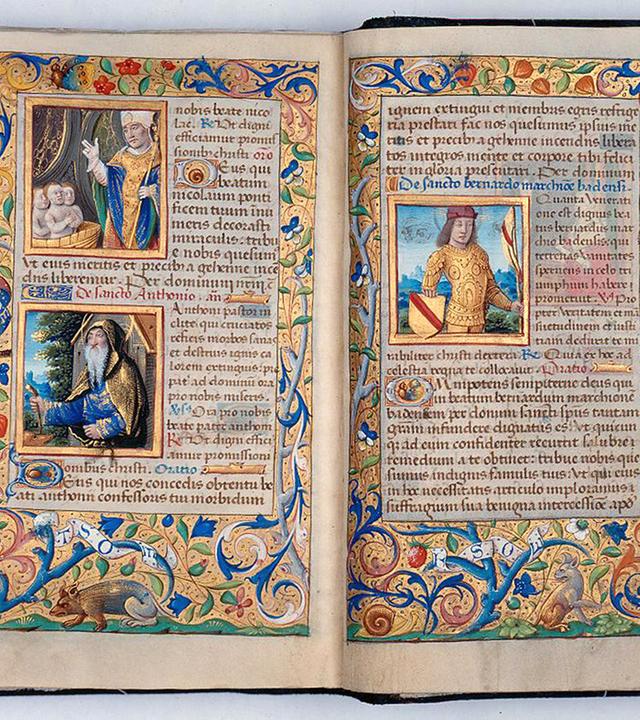 nobis beate nico
lae. R. Ut digni
efficiamur promis
sionib christi oro
Deus qui
beatum
nicolaum ponti
ficem tuum inu
meris decorasti
miraculis: tribu
e nobis quesum
Ut eius meritis et precib a gehenne ince
dijs liberemur. Per dominum nrm
De Sancto Anthonio. an
Anthoni pastor in
clite qui cruciatos
reficis morbos sana
et destruis ignis ca
lorem extinguis. pi
pat ad dominū ora
pro nobis miseris.
Ora pro nobis
beate pater anthoni
R. Ut digni effici
amur promissioni
onibus christi. Oratio
Deus qui nos concedis obtentu be
ati anthonii confessoris tui morbidum
SO
ignem extingui et membris egris refrige
ria prestari fac nos quesumus ipsius me
ritis et precib a gehenne incendijs libera
tos integros mente et corpore tibi felici
ter in gloria presentari. Per dominum
De sancto bernardo marchiōe badensi.
Quanta venerati
one est dignus bea
tus bernardus mar
chio badensis qui
terrenas vanitates
sperneus in celo tri
umphum habere
promeruit. Pro
nibiliter christi dextera. R. Quia ex hoc ad
celestia regna te collocauit. Oratio
Omnipotens sempiterne deus qui
beatum bernardum marchionē
badensem per donum sancti spūs tantam
gram infundere dignatus es Ut quicum
q ad eum confidenter recurrit salubre
remedium a te obtinet: tribue nobis que
sumus indignis famulis tuis Ut qui eius
in hoc necessitatis articulo imploramus
suffragium sua benigna intercessiōe apd
SO